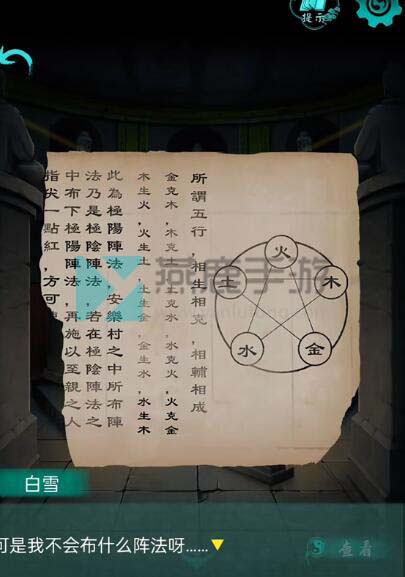 提示
火
土
木
水
金
所謂五行 相生相克，相輔相成
金克木，木克土，土克水，水克火，火克金
木生火，火生土，土生金，金生水，水生木
此為極陽陣法，安樂村之中所布陣
法乃是極陰陣法，若在極陰陣法之
中布下極陽陣法，再施以至親之人
指尖一點紅，方可
白雪
可是我不会布什么阵法呀……
查看